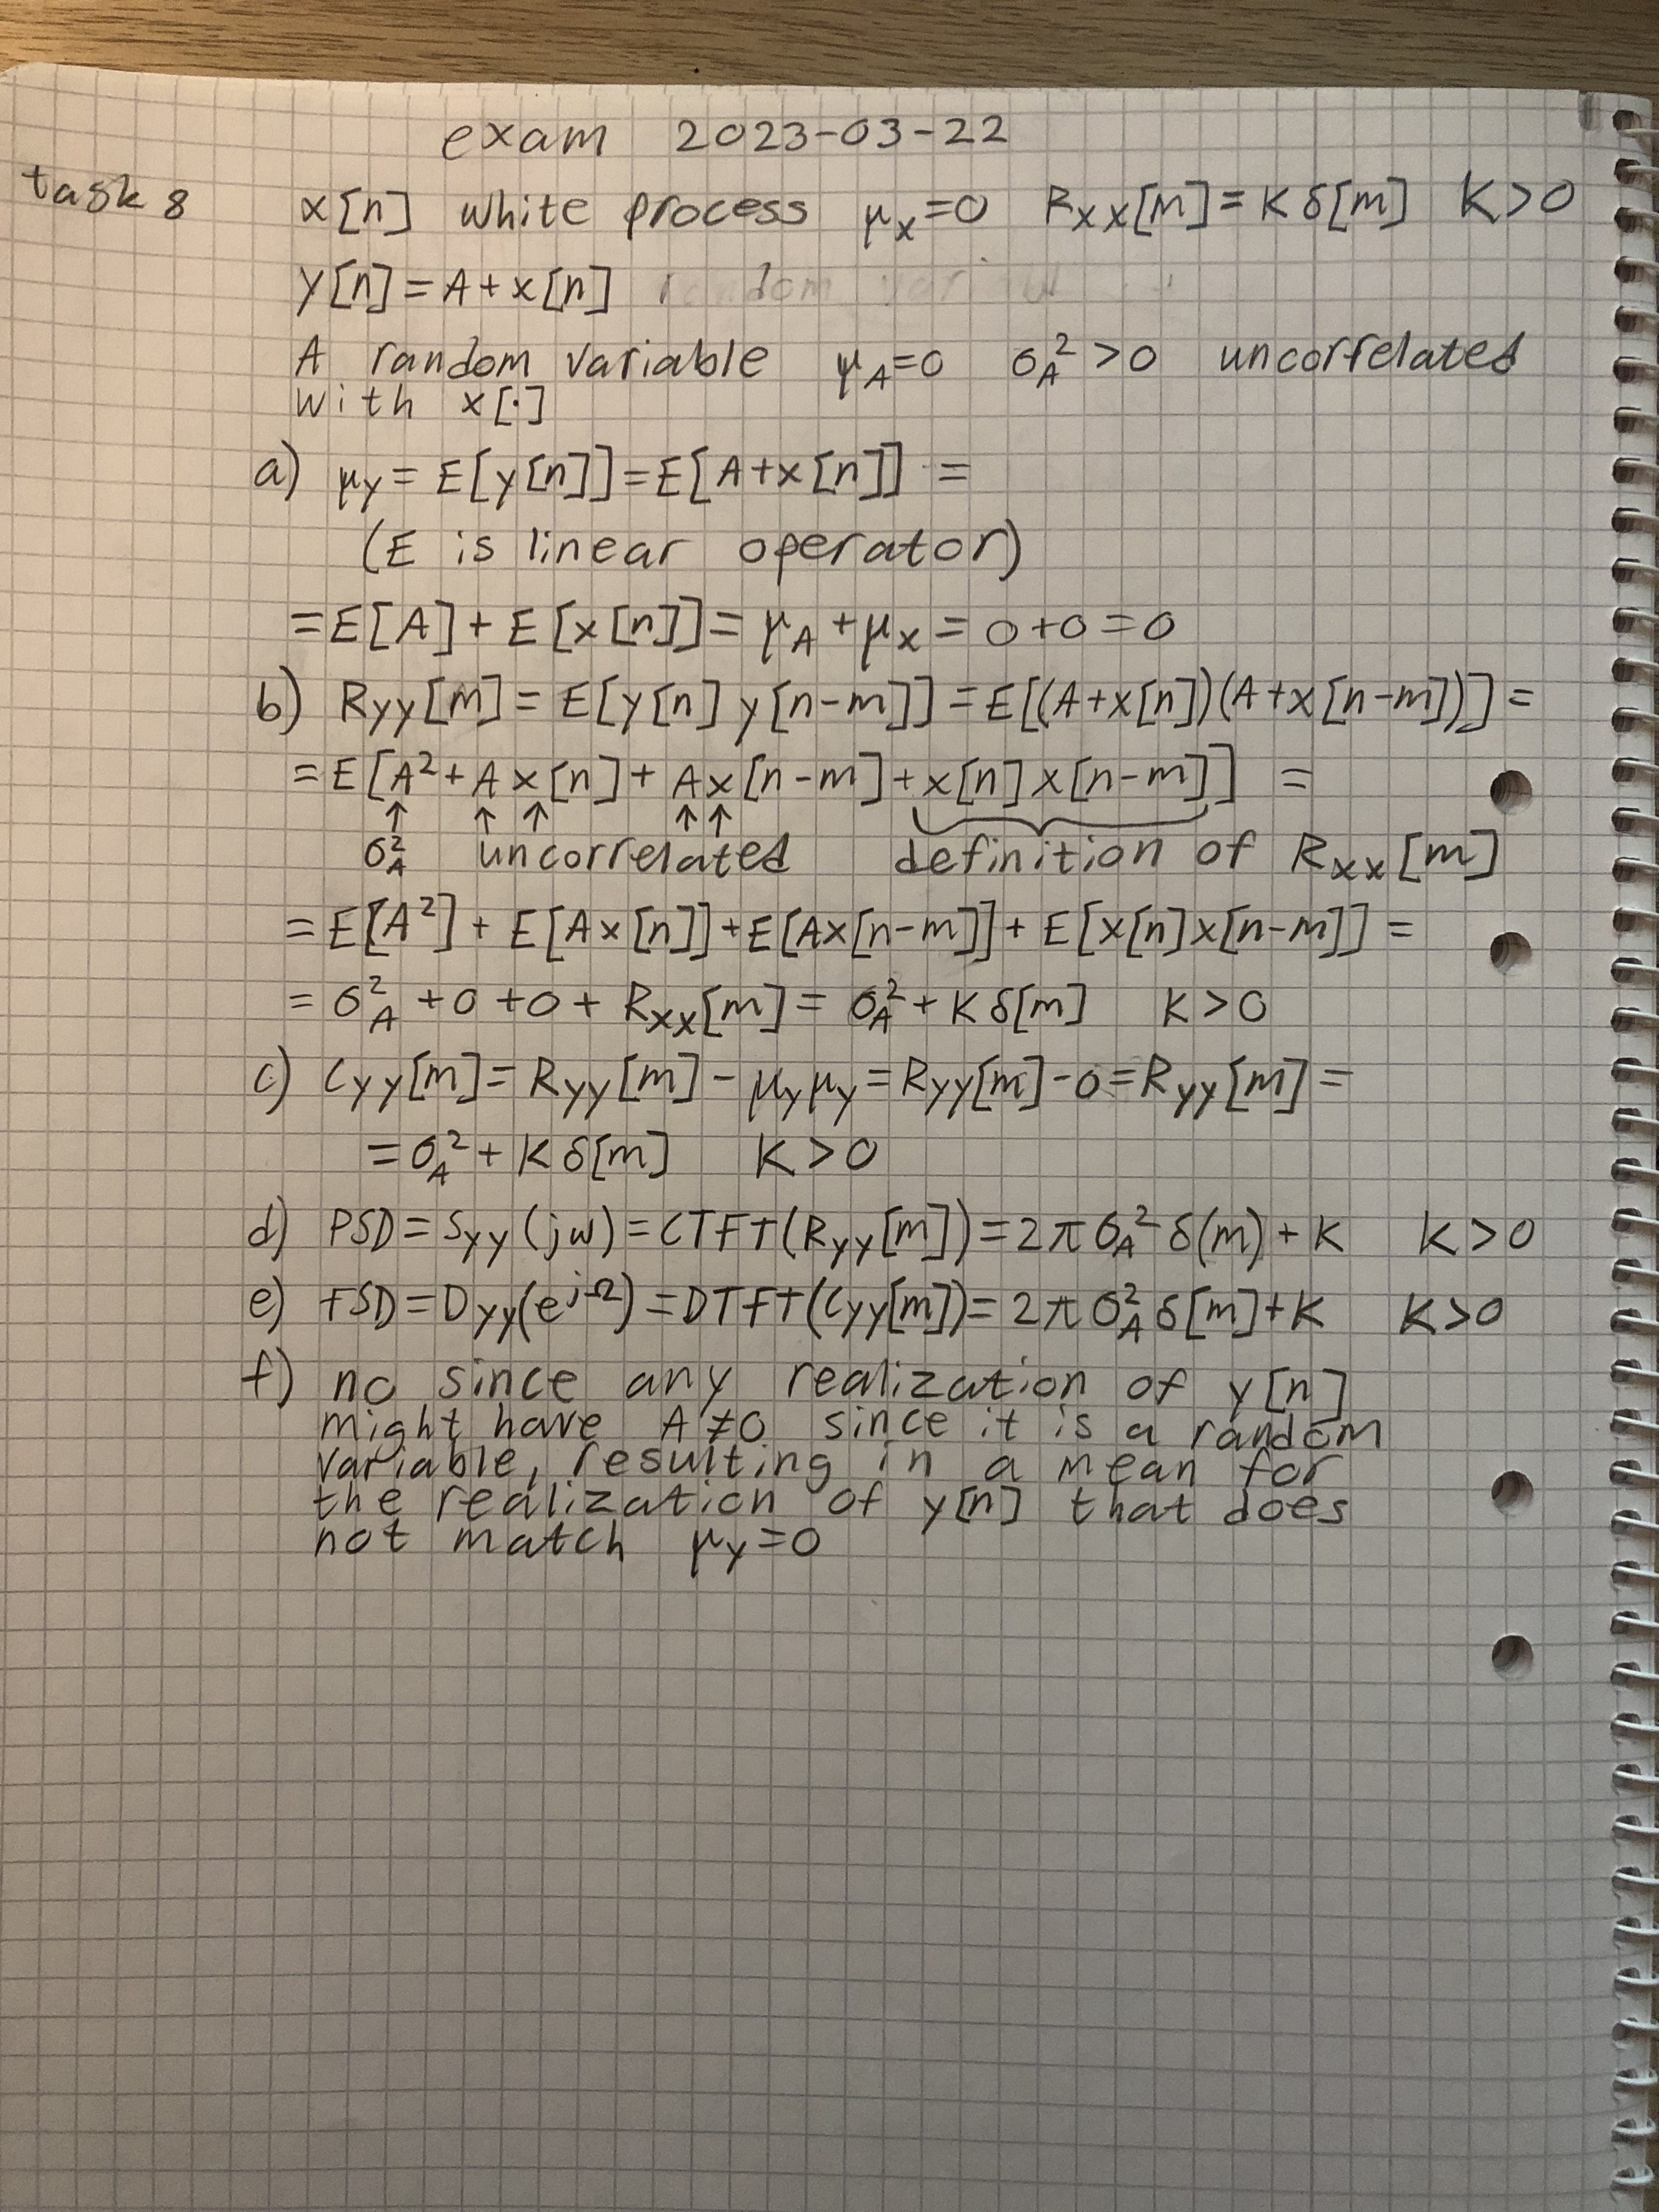 exam 2023-03-22
task 8 x[n] white process μx=0 Rxx[m]=Kδ[m] K>0
y[n]=A+x[n] random
A random variable μA=0 σA²>0 uncorrelated
with x[·]
a) μy=E[y[n]]=E[A+x[n]] =
(E is linear operator)
=E[A]+E[x[n]]=μA+μx=0+0=0
b) Ryy[m]=E[y[n]y[n-m]]=E[(A+x[n])(A+x[n-m])]=
=E[A²+Ax[n]+Ax[n-m]+x[n]x[n-m]] =
↑ ↑ ↑ ↑ ↑
σA² uncorrelated definition of Rxx[m]
=E[A²]+E[Ax[n]]+E[Ax[n-m]]+E[x[n]x[n-m]]=
=σA²+0+0+Rxx[m]=σA²+Kδ[m] K>0
c) Cyy[m]=Ryy[m]-μyμy=Ryy[m]-0=Ryy[m]=
=σA²+Kδ[m] K>0
d) PSD=Syy(jω)=CTFT(Ryy[m])=2πσA²δ(m)+K K>0
e) FSD=Dyy(e^jΩ)=DTFT(Cyy[m])=2πσA²δ[m]+K K>0
f) no since any realization of y[n]
might have A≠0 since it is a random
variable, resulting in a mean for
the realization of y[n] that does
not match μy=0